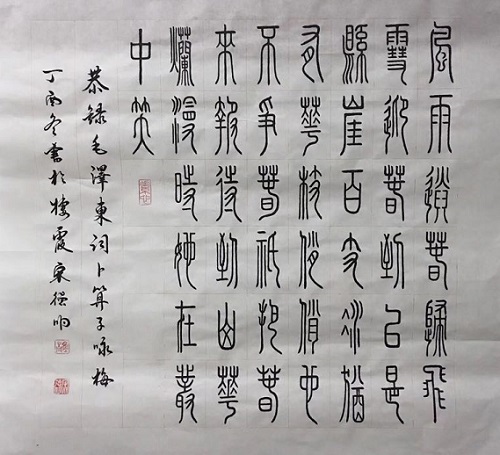 風雨送春歸飛
雪迎春到已是
縣崖百丈冰猶
有華枝俏俏也
不爭春祇把春
來報待到山華
爛漫時她在叢
中笑
恭錄毛澤東詞卜算子咏梅
丁酉冬書於棲霞